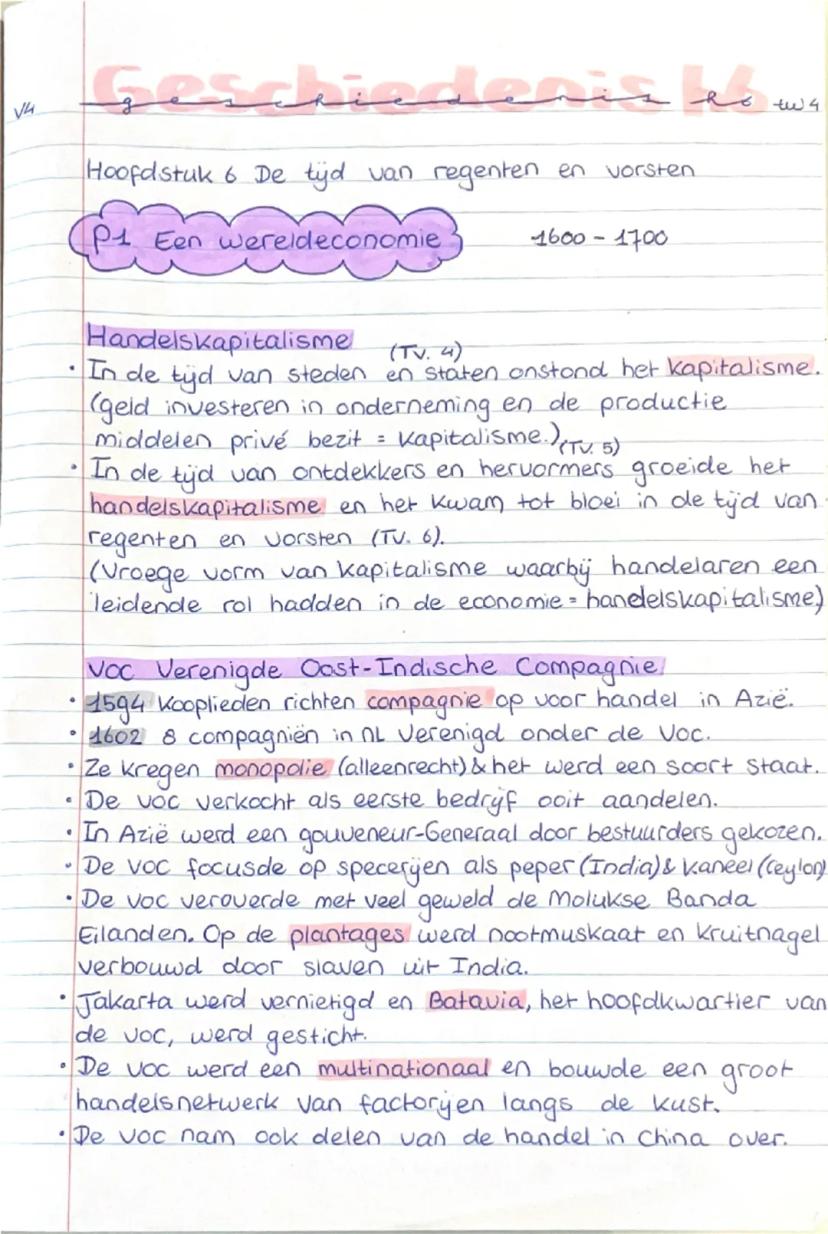 Geschiedenis H6
V4 geschiedenis h6 tw4
Hoofdstuk 6 De tijd van regenten en vorsten
P1 Een wereldeconomie 1600 - 1700
Handelskapitalisme
(TV. 4)
• In de tijd van steden en staten onstond het kapitalisme.
(geld investeren in onderneming en de productie
middelen privé bezit = kapitalisme.) (TV. 5)
• In de tijd van ontdekkers en hervormers groeide het
handelskapitalisme en het kwam tot bloei in de tijd van
regenten en vorsten (TV. 6).
(Vroege vorm van kapitalisme waarbij handelaren een
leidende rol hadden in de economie = handelskapitalisme)
VOC Verenigde Oost-Indische Compagnie
• 1594 Kooplieden richten compagnie op voor handel in Azië.
• 1602 8 compagniën in NL Verenigd onder de VOC.
• Ze kregen monopolie (alleenrecht) & het werd een soort staat.
• De VOC verkocht als eerste bedrijf ooit aandelen.
• In Azië werd een gouveneur-Generaal door bestuurders gekozen.
• De VOC focusde op specerijen als peper (India) & kaneel (Ceylon)
• De VOC veroverde met veel geweld de Molukse Banda
Eilanden. Op de plantages werd nootmuskaat en kruitnagel
verbouwd door slaven uit India.
• Jakarta werd vernietigd en Batavia, het hoofdkwartier van
de VOC, werd gesticht.
• De VOC werd een multinationaal en bouwde een groot
handelsnetwerk van factorijen langs de kust.
• De VOC nam ook delen van de handel in China over.